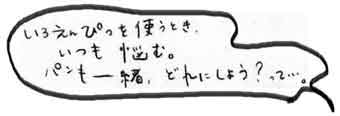 いろえんぴつを使うとき、
いつも悩む。
パンも一緒、どれにしよう?って…。